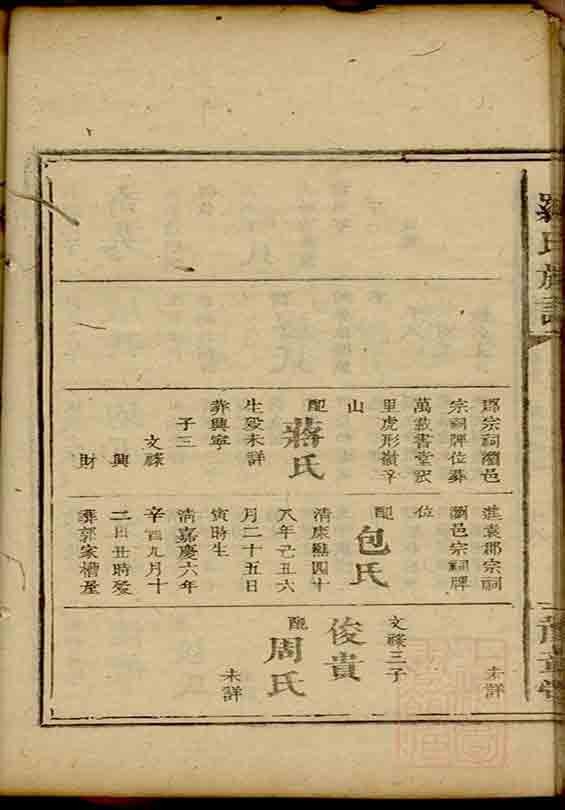 氏族
郡宗祠瀏邑
宗祠牌位葬
萬載書堂
里虎形
山
配
蔣氏
生殁未詳
葬興寧
子三
文祿
興
財
進袁郡宗祠
瀏邑宗祠牌
位
配
包氏
清康熙四十
八年己丑六
月二十五日
寅時生
清嘉慶六年
辛酉九月十
二日丑時殁
葬郭家槽屋
未詳
文祿三子
俊貴
配
周氏
未詳